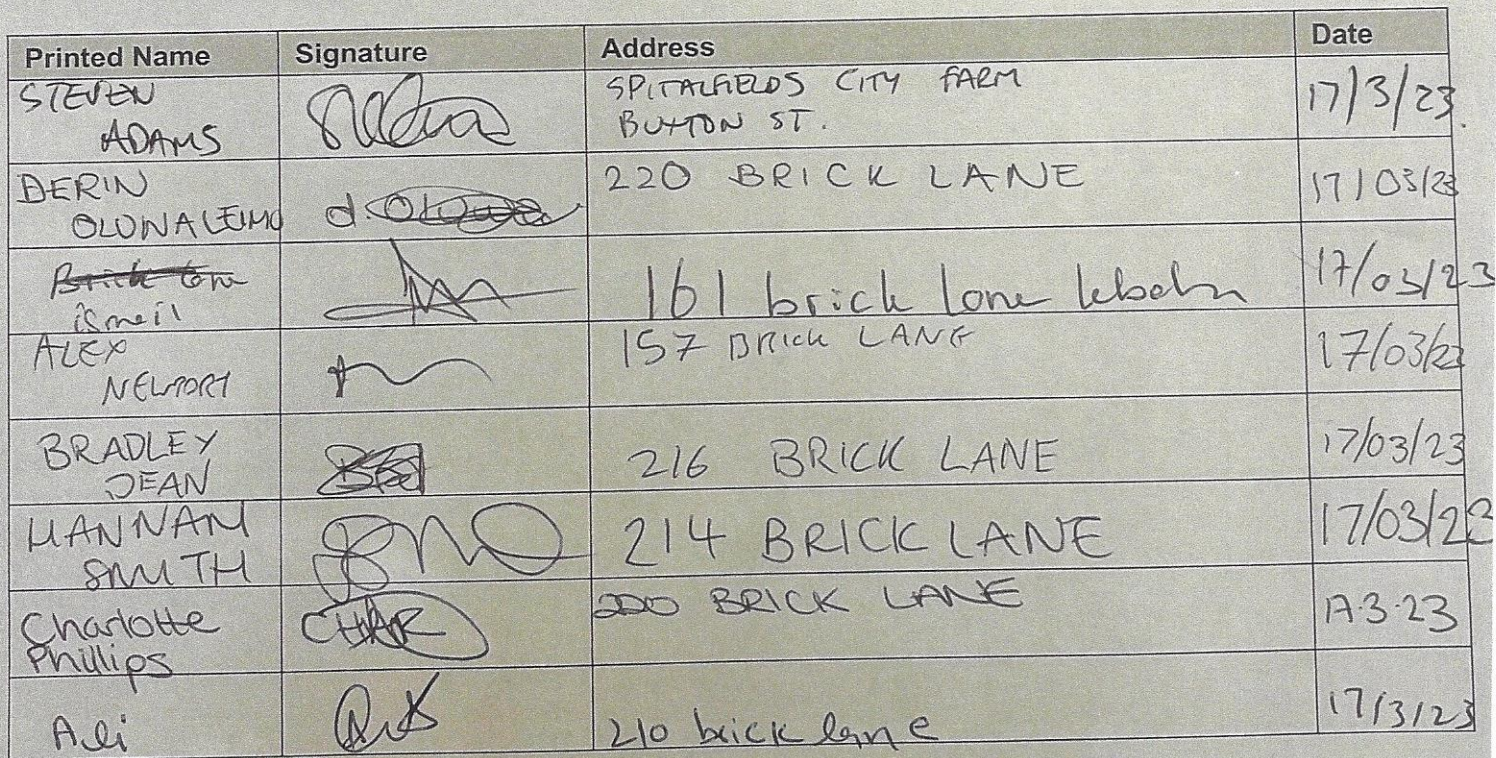 Printed Name Signature Address Date
STEVEN ADAMS SPITALFIELDS CITY FARM BUXTON ST. 17/3/23
DERIN 220 BRICK LANE 17/03/23
ismeil 161 brick lane 17/03/23
ALEX NEWPORT 157 BRICK LANE 17/03/23
BRADLEY DEAN 216 BRICK LANE 17/03/23
HANNAH SMITH 214 BRICK LANE 17/03/23
Charlotte Phillips CHAR 200 BRICK LANE 17.3.23
Ali 210 brick lane 17/3/23